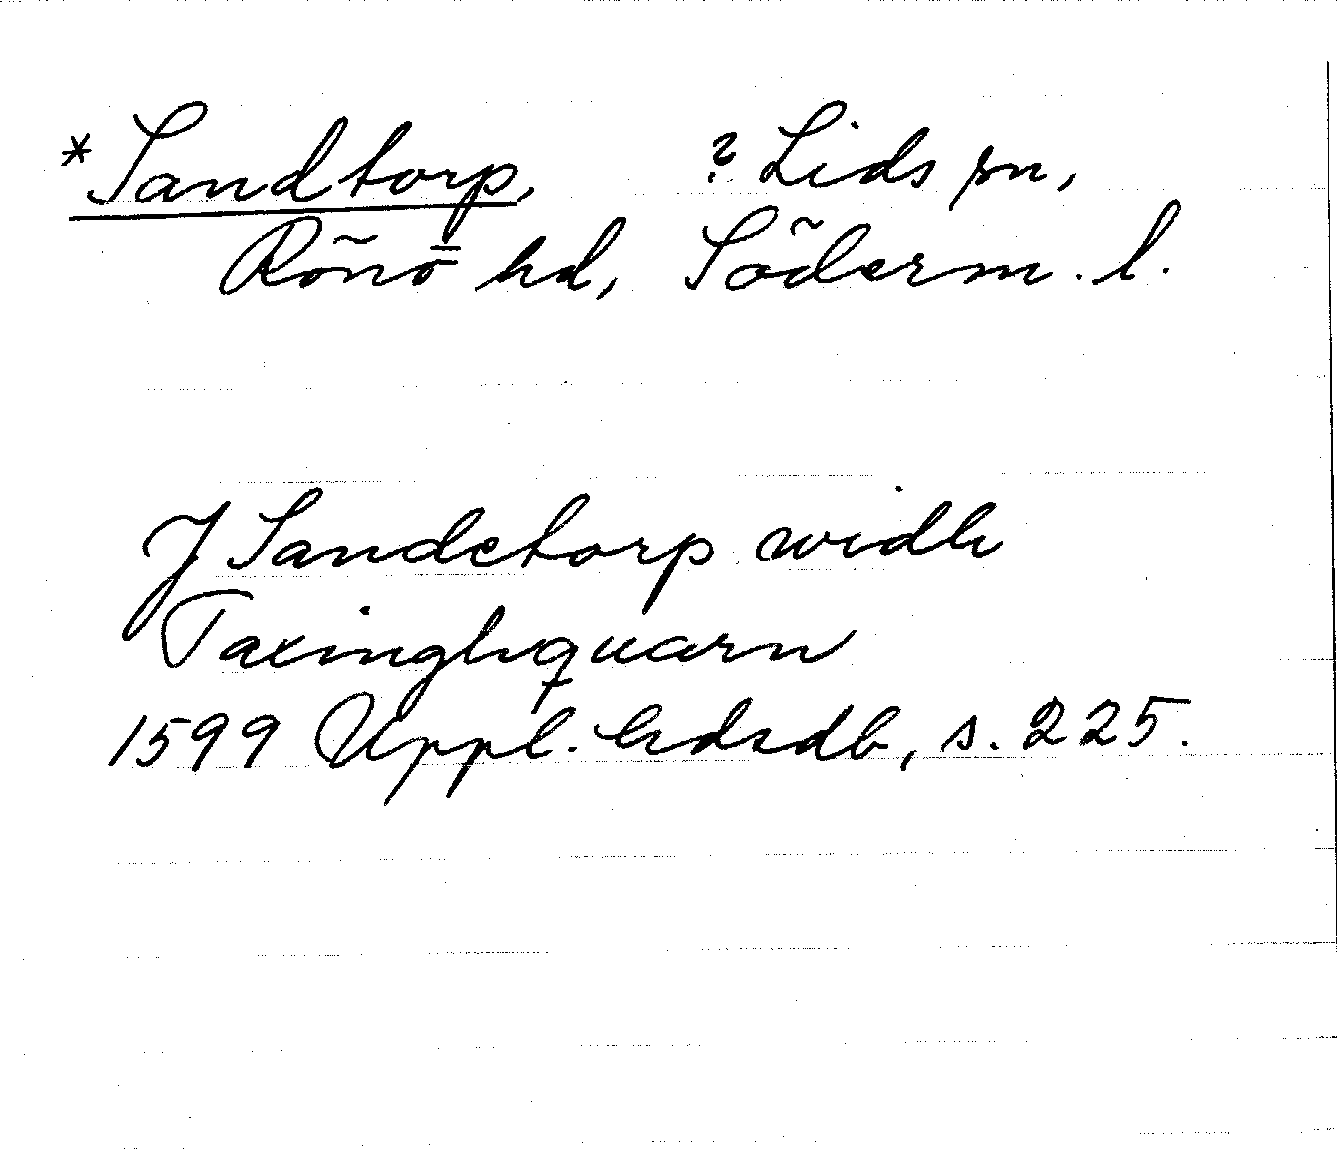 *Sandtorp, ? Lids sn,
Rönö hd, Söderm. l.
J Sandetorp widh
Taxinghquarn
1599 Uppl. hdrdb, s. 225.